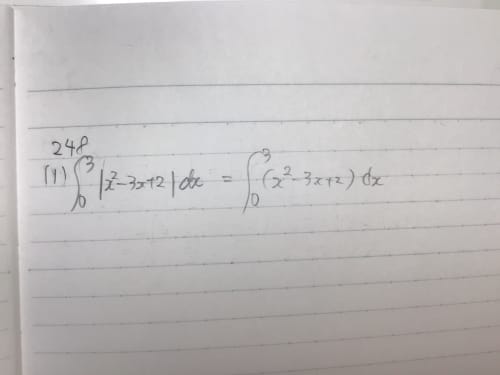 248
(1) ∫₀³ |x²-3x+2| dx = ∫₀³ (x²-3x+2) dx